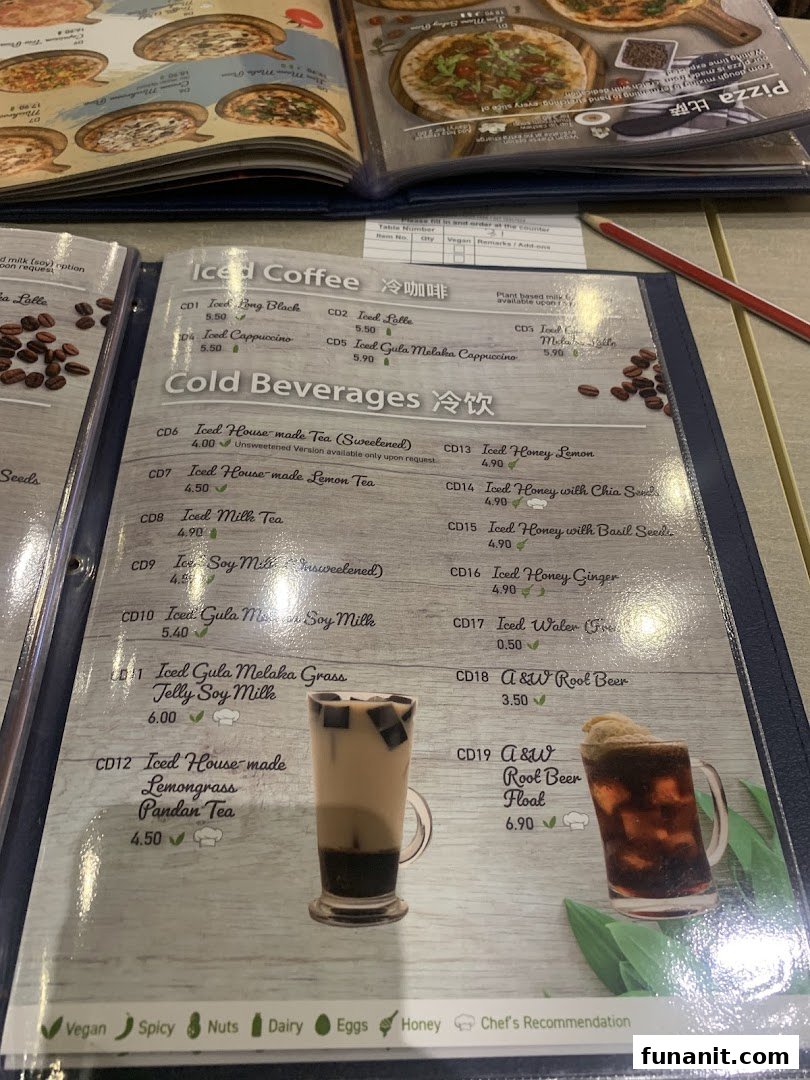 Pizza 比萨
D1
18.90
D6
16.90
D7
17.90
D8
D9
Please fill in and order at the counter
Table Number
Item No. Qty Vegan Remarks / Add-ons
milk (soy) option
upon request
Latte
Seeds
Iced Coffee 冷咖啡
Plant based milk
available upon
CD1 Iced Long Black
5.50
CD2 Iced Latte
5.50
CD3 Iced
5.90
Iced Cappuccino
5.50
CD5 Iced Gula Melaka Cappuccino
5.90
Cold Beverages 冷饮
CD6 Iced House-made Tea (Sweetened)
4.00 Unsweetened Version available only upon request
CD7 Iced House-made Lemon Tea
4.50
CD8 Iced Milk Tea
4.90
CD9 Iced Soy Milk (Unsweetened)
CD10 Iced Gula Soy Milk
5.40
Iced Gula Melaka Grass
Jelly Soy Milk
6.00
CD12 Iced House-made
Lemongrass
Pandan Tea
4.50
CD13 Iced Honey Lemon
4.90
CD14 Iced Honey with Chia Seeds
4.90
CD15 Iced Honey with Basil Seeds
4.90
CD16 Iced Honey Ginger
4.90
CD17 Iced Water
0.50
CD18 A&W Root Beer
3.50
CD19 A&W
Root Beer
Float
6.90
Vegan Spicy Nuts Dairy Eggs Honey Chef's Recommendation
funanit.com